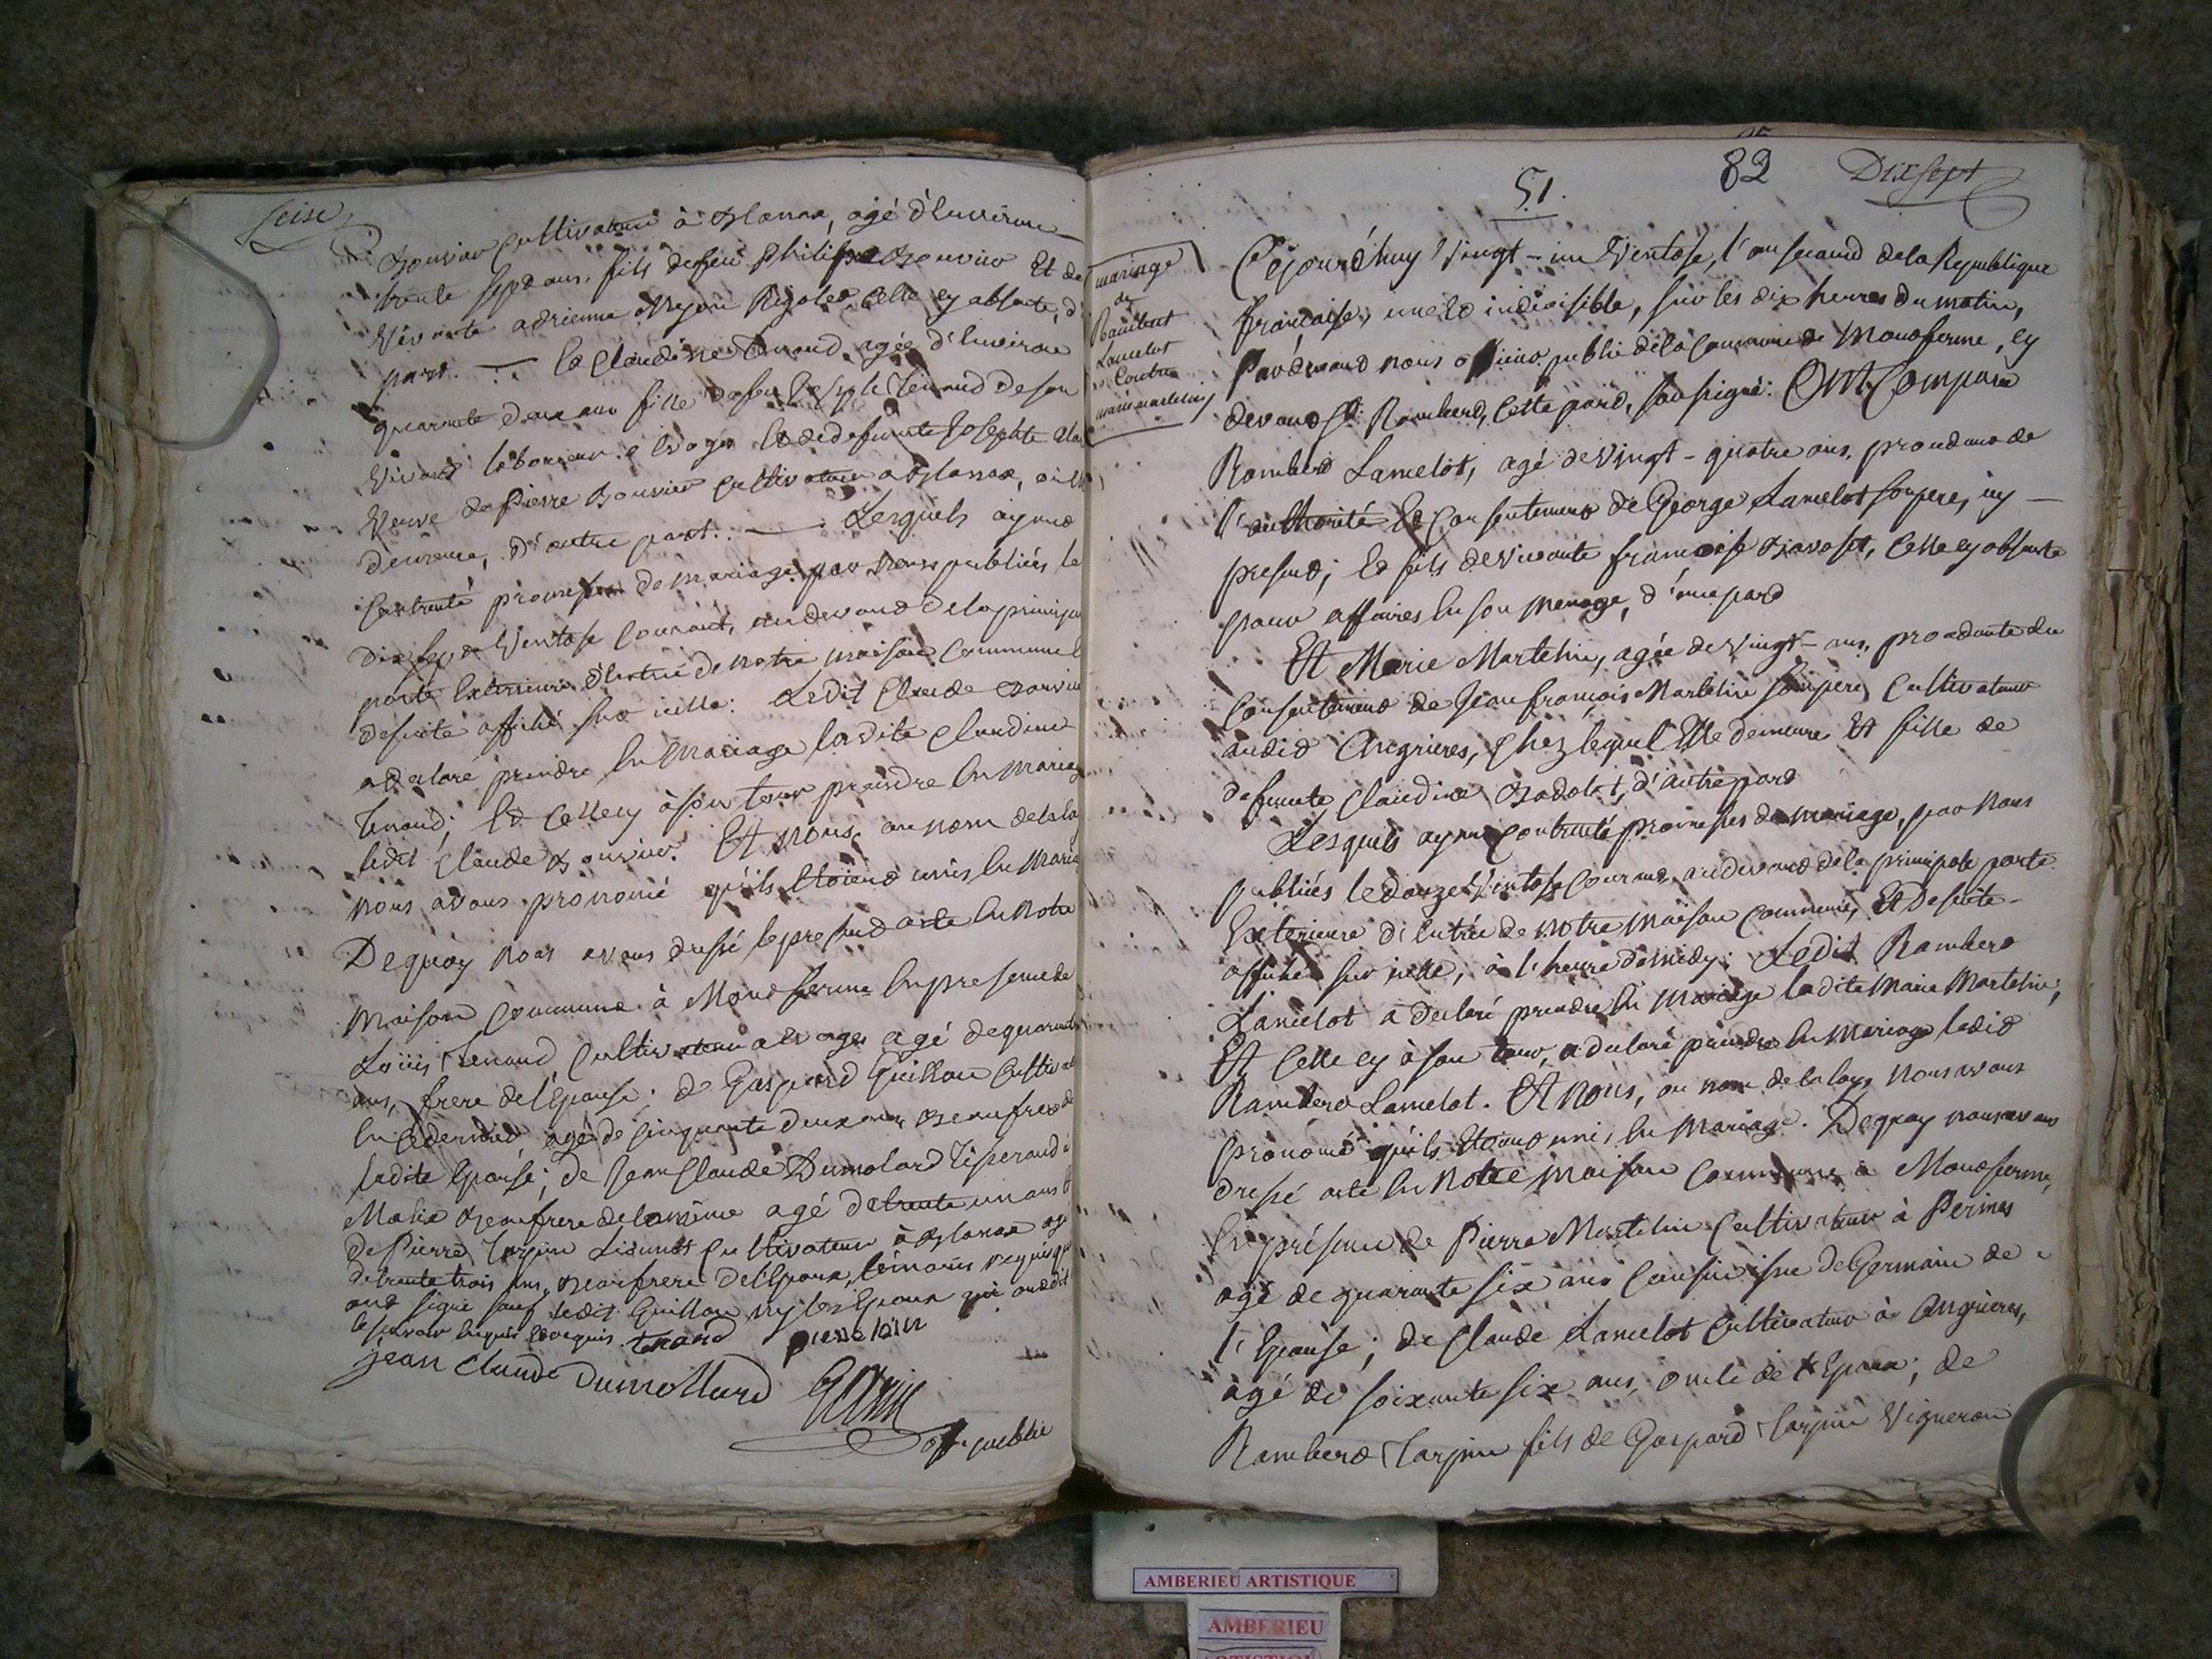 Seise
Bouvier Cultivateur à Blanas, agé d'Environ
trente sept ans, fils de feu Philippe Bouvier Et de
Vivante adrienne Rigolet Celle cy absente, d'
part. Et Claudine Tenand agée d'Environ
quarante deux ans fille de feu Joseph Tenand de son
Vivant laboureur Et de defunte Josephte
Veuve de Pierre Bouvier Cultivateur a Blanas, où Elle
demeure, d'autre part. Lesquels ayant
Contracté promesses de mariage par nous publiées le
Dix sept Ventose Courant, audevand de la principale
porte Exterieure d'Entrée de notre maison Commune Et
desuite affiché sur icelle: Ledit Claude Bouvier
a declaré prendre En mariage ladite Claudine
Tenand; Et Celle cy à son tour prendre En mariage
ledit Claude Bouvier. Et nous, au nom de la loy
nous avons prononcé qu'ils Etoient unis En Mariage
Dequoy nous avons dressé le present acte En notre
maison Commune à Montferme En presence de
Loüis Tenand, Cultivateur agé de quarante
ans, frere de l'Epouse; de Gaspard Guillon Cultivateur
En cedernier agé de Cinquante deux ans, Beaufrere de
ladite Epouse; de Jean Claude Dumolard Tisserand à
Beaufrere de la même agé de trente un ans Et
de Pierre Tarpin Cultivateur à Blanas agé
de trente trois ans, Beaufrere de l'Epoux, témoins requis qui
ont signé sauf ledit Guillon ny les Epoux qui ont dit
le savoir Enquis Et requis. Tenand
jean Claude Dumollard
off. publie
51.
82
Dix sept
mariage
de
Rambert
Lamelot
Contre
marie martelin
Cejourd'huy Vingt-un Ventose, l'an second de la Republique
française, une Et indivisible, sur les dix heures du matin,
Pardevand nous officier public de la Commune de Montferme, cy
devand St. Rambert, Cette part, soussigné: Ont Comparu
Rambert Lamelot, agé de Vingt-quatre ans, procedant de
l'authorité Et Consentement de George Lamelot son pere, icy
present; Et fils de vivante françoise Savoset, Celle cy absente
pour affaires En son menage, d'une part
Et Marie Martelin, agée de vingt-ans, procedante du
Consentement de Jean françois Martelin son pere, Cultivateur
audit Angrieres, Chez lequel Elle demeure Et fille de
defunte Claudine Bodolot, d'autre part
Lesquels ayant Contracté promesses de mariage, par nous
publiées le douze Ventose Courant, audevand de la principale porte
Exterieure d'Entrée de notre maison Commune, Et desuite
affiché sur icelle, à l'heure de midy: Ledit Rambert
Lamelot a declaré prendre En mariage ladite Marie Martelin;
Et Celle cy à son tour, a declaré prendre En mariage ledit
Rambert Lamelot. Et nous, au nom de la loy, nous avons
prononcé qu'ils Etoient unis En mariage. Dequoy nous avons
dressé acte En notre maison Commune à Montferme,
En présence de Pierre Martelin Cultivateur à Perines
agé de quarante six ans Cousin issu de Germain de
l'Epouse; de Claude Lamelot Cultivateur à Angrieres,
agé de soixante six ans, oncle de l'Epoux; de
Rambert Tarpin fils de Gaspard Tarpin Vigneron
AMBERIEU ARTISTIQUE
AMBERIEU
ARTISTIQUE